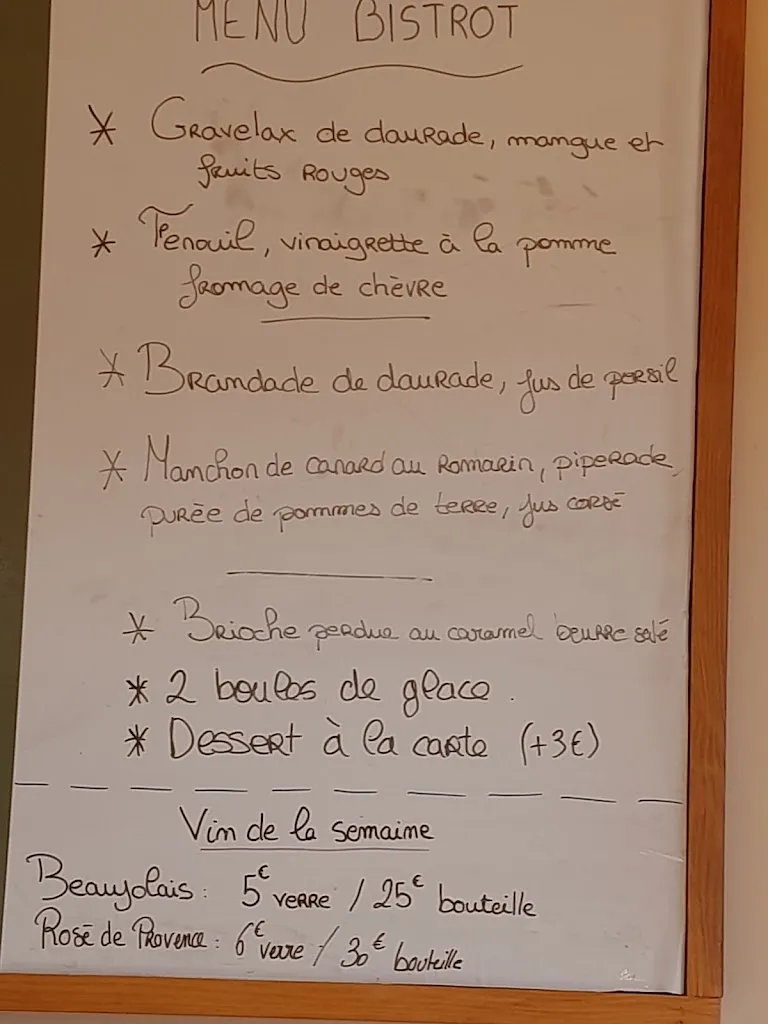 MENU BISTROT
* Gravelax de daurade, mangue et
fruits rouges
* Fenouil, vinaigrette à la pomme
fromage de chèvre
* Brandade de daurade, jus de persil
* Manchon de canard au romarin, piperade,
purée de pommes de terre, jus corsé
* Brioche perdue au caramel beurre salé
* 2 boules de glace.
* Dessert à la carte (+3€)
Vin de la semaine
Beaujolais : 5€ verre / 25€ bouteille
Rosé de Provence : 6€ verre / 30€ bouteille